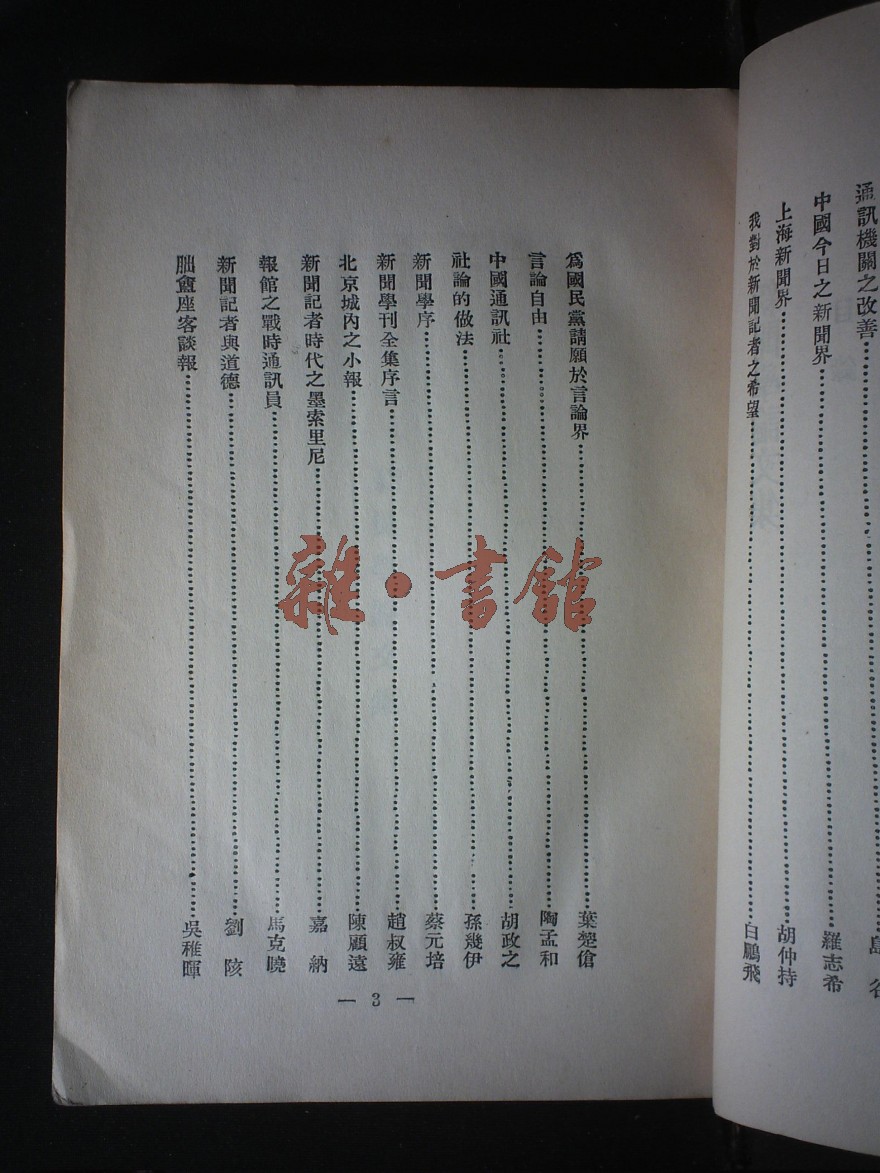 通訊機關之改善……島 谷
中國今日之新聞界……羅志希
上海新聞界……胡仲持
我對於新聞記者之希望……白鵬飛
爲國民黨請願於言論界……葉楚傖
言論自由……陶孟和
中國通訊社……胡政之
社論的做法……孫幾伊
新聞學序……蔡元培
新聞學刊全集序言……趙叔雍
北京城內之小報……陳顧遠
新聞記者時代之墨索里尼……嘉 納
報館之戰時通訊員……馬克曉
新聞記者與道德……劉 陔
朏盦座客談報……吳稚暉
— 3 —
雜·書館